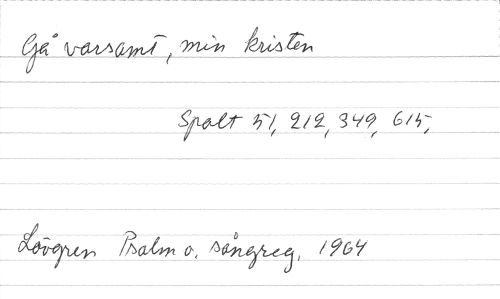 Gå varsamt, min kristen
Spalt 51, 212, 349, 615,
Lövgren Psalm o. sångreg. 1964